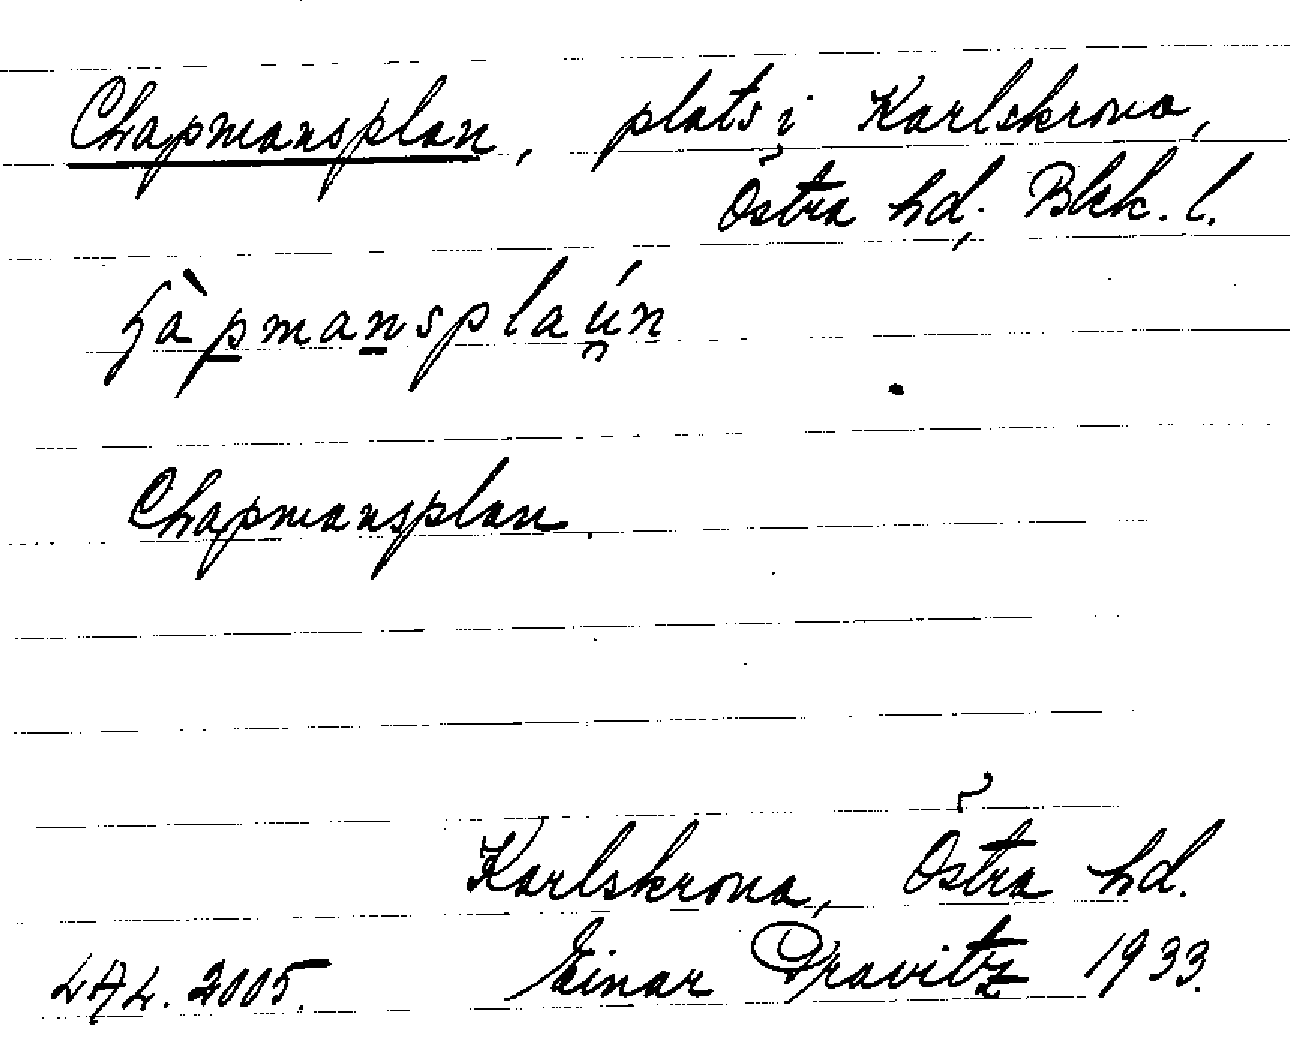 Chapmansplan, plats i Karlskrona,
Östra hd, Blek. l.
Chapmansplan
Karlskrona, Östra hd.
LAL. 2005. Einar Pravitz 1933.